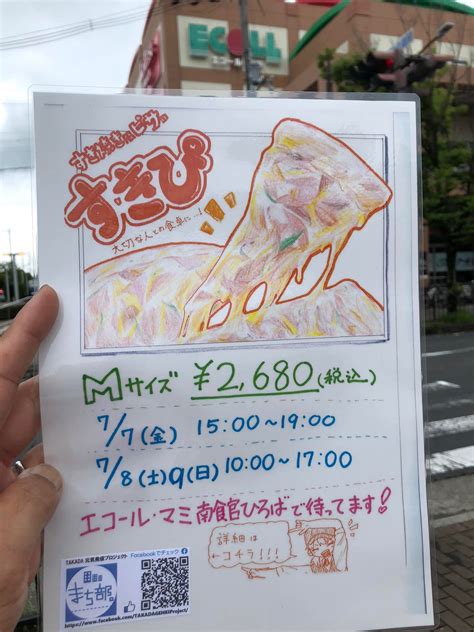 ECOLL
すき焼き風ピザ
すきぴ
大切な人との食卓に…!
Mサイズ ¥2,680(税込)
7/7(金) 15:00~19:00
7/8(土)9(日) 10:00~17:00
エコール・マミ南館ひろばで待ってます!
詳細は
←コチラ!!!
TAKADA 元気発信プロジェクト Facebookでチェック
まち部
https://www.facebook.com/TAKADAGENKIProject/